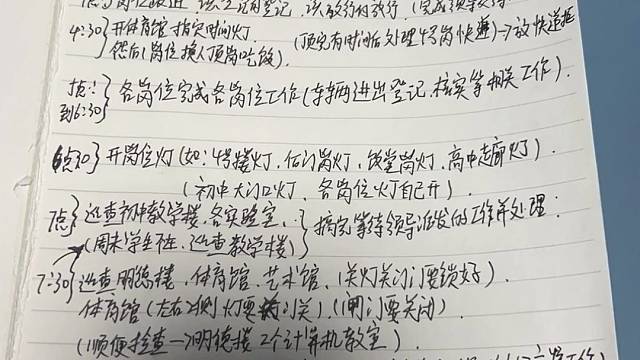 4:30}开体育馆指定时间灯. (顶完有时间后处理4号岗快递)→放快递柜
然后1岗位换人顶岗吃饭).
到6:30}各岗位完成各岗位工作(车辆进出登记、核实等相关工作).
6点30}开岗位灯(如:4号楼灯、后门岗灯、饭堂岗灯、高中走廊灯).
(初中大门口灯、各岗位灯自己开).
7点}巡查初中教学楼、各实验室、}搞完等待领导派发的工作并处理:
(周末学生不在、巡查教学楼)
7:30}巡查明德楼、体育馆、艺术馆、(关灯关门要锁好).
体育馆(左右2侧灯要关)(闸门要关闭).
(顺便检查→明德楼2个计算机教室).